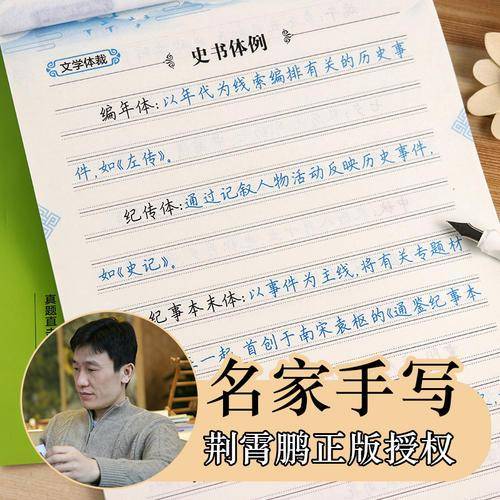 文学体裁
史书体例
编年体:以年代为线索编排有关的历史事
件,如《左传》。
纪传体:通过记叙人物活动反映历史事件,
如《史记》。
纪事本末体:以事件为主线,将有关专题材
一起,首创于南宋袁枢的《通鉴纪事本
真题直击
名家手写
荆霄鹏正版授权